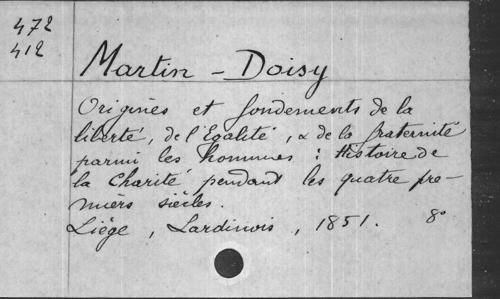 472
412
Martin - Doisy
Origines et fondements de la
liberté, de l'Egalité, & de la fraternité
parmi les hommes : Histoire de
la Charité pendant les quatre pre-
miers siècles.
Liége, Lardinois, 1851. 8°